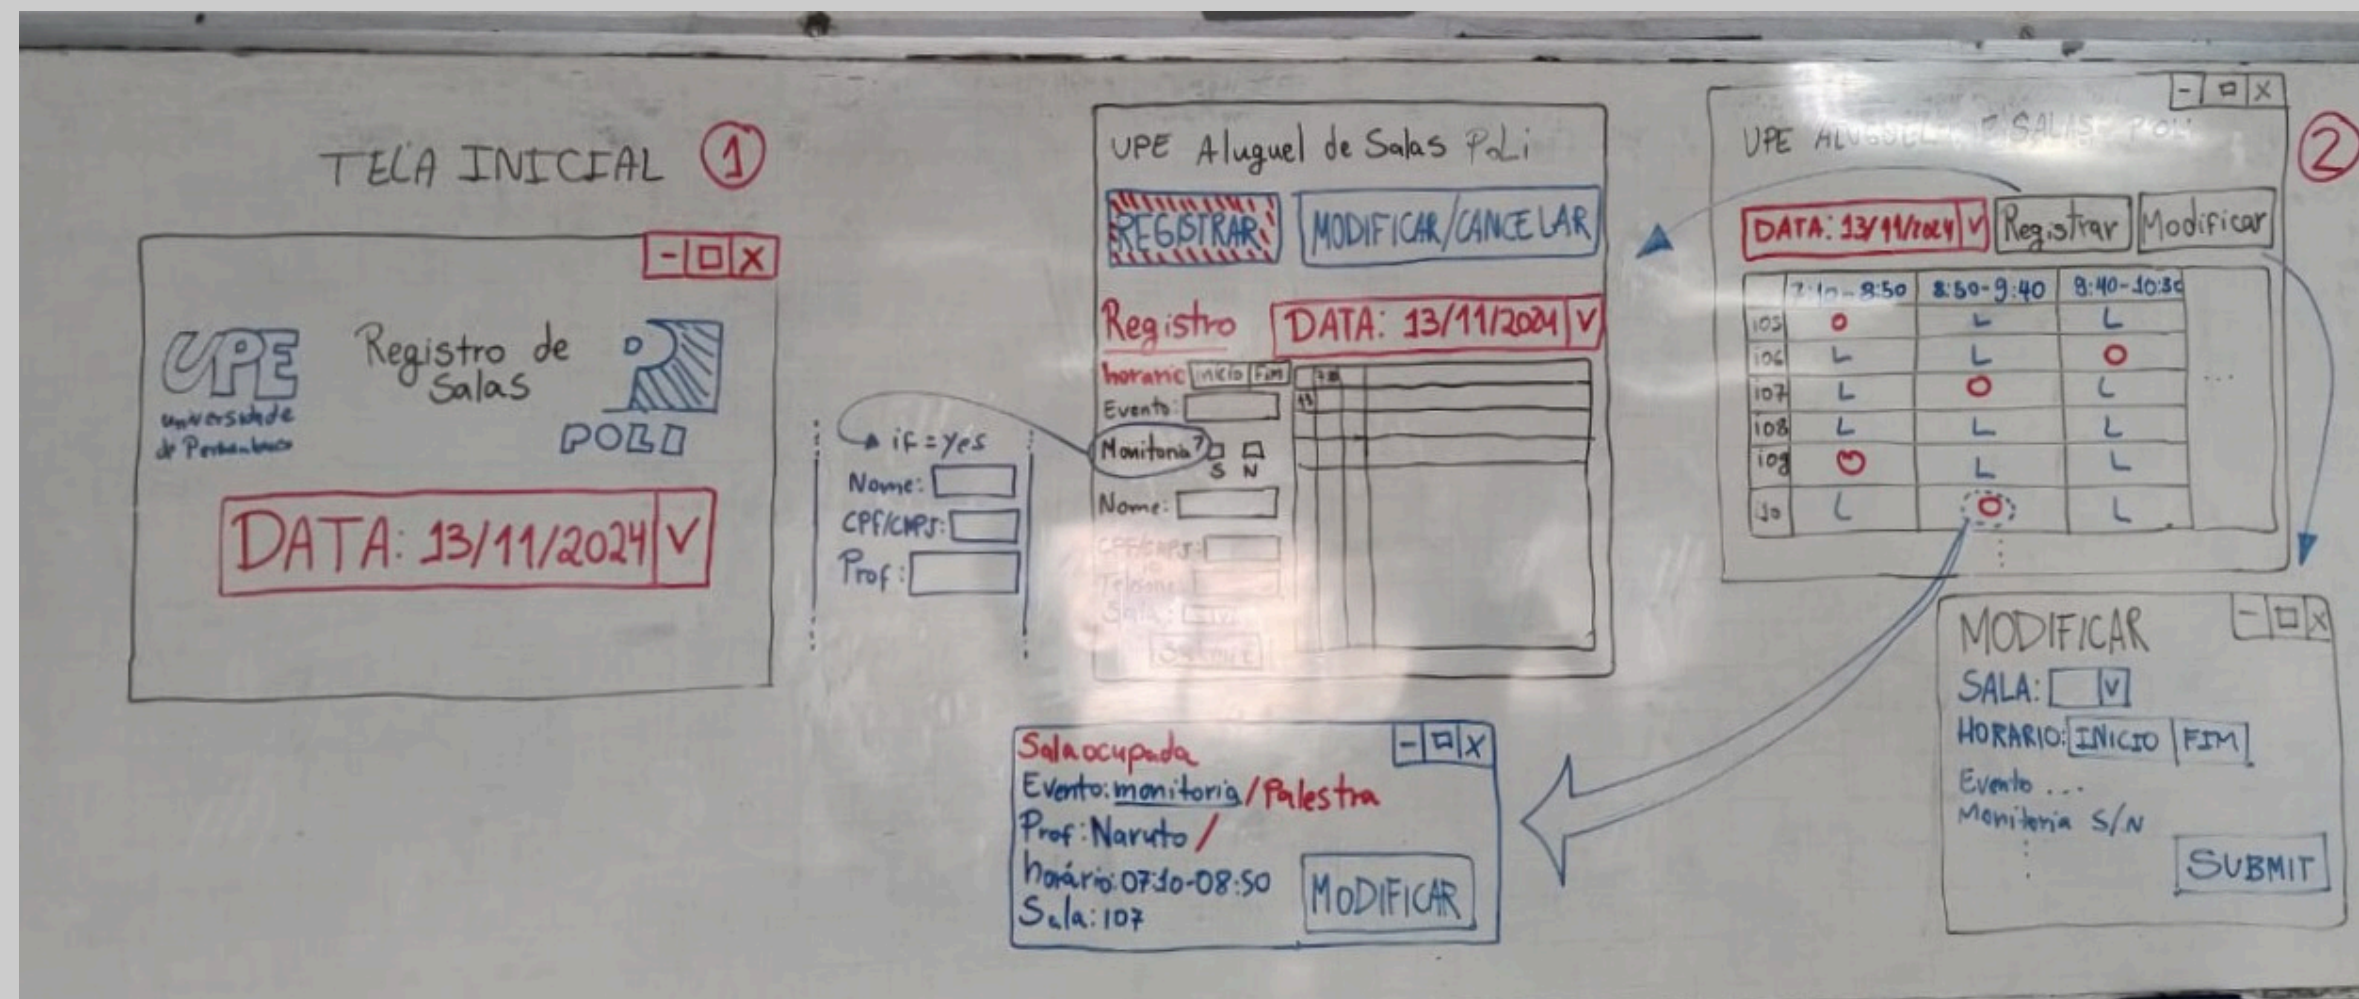 TELA INICIAL 1
- □ X
UPE
Universidade
de Pernambuco
Registro de
Salas
POLI
DATA: 13/11/2024 V
if = yes
Nome:
CPF/CNPJ:
Prof:
UPE Aluguel de Salas PoLi
REGISTRAR MODIFICAR/CANCELAR
Registro DATA: 13/11/2024 V
horario inicio Fim
Evento:
Monitoria?
S N
Nome:
CPF/CNPJ:
Telefone:
Sala: V
Submit
- □ X
2
UPE ALUGUEL DE SALAS POLI
DATA: 13/11/2024 V Registrar Modificar
7:10-8:50 8:50-9:40 9:40-10:30
105 O L L
106 L L O
107 L O L
108 L L L
109 O L L
10 L O L
...
Sala ocupada - □ X
Evento: monitoria/Palestra
Prof: Naruto /
horário: 07:10-08:50
Sala: 107
MODIFICAR
MODIFICAR - □ X
SALA: V
HORARIO: INICIO FIM
Evento ...
Monitoria S/N
SUBMIT